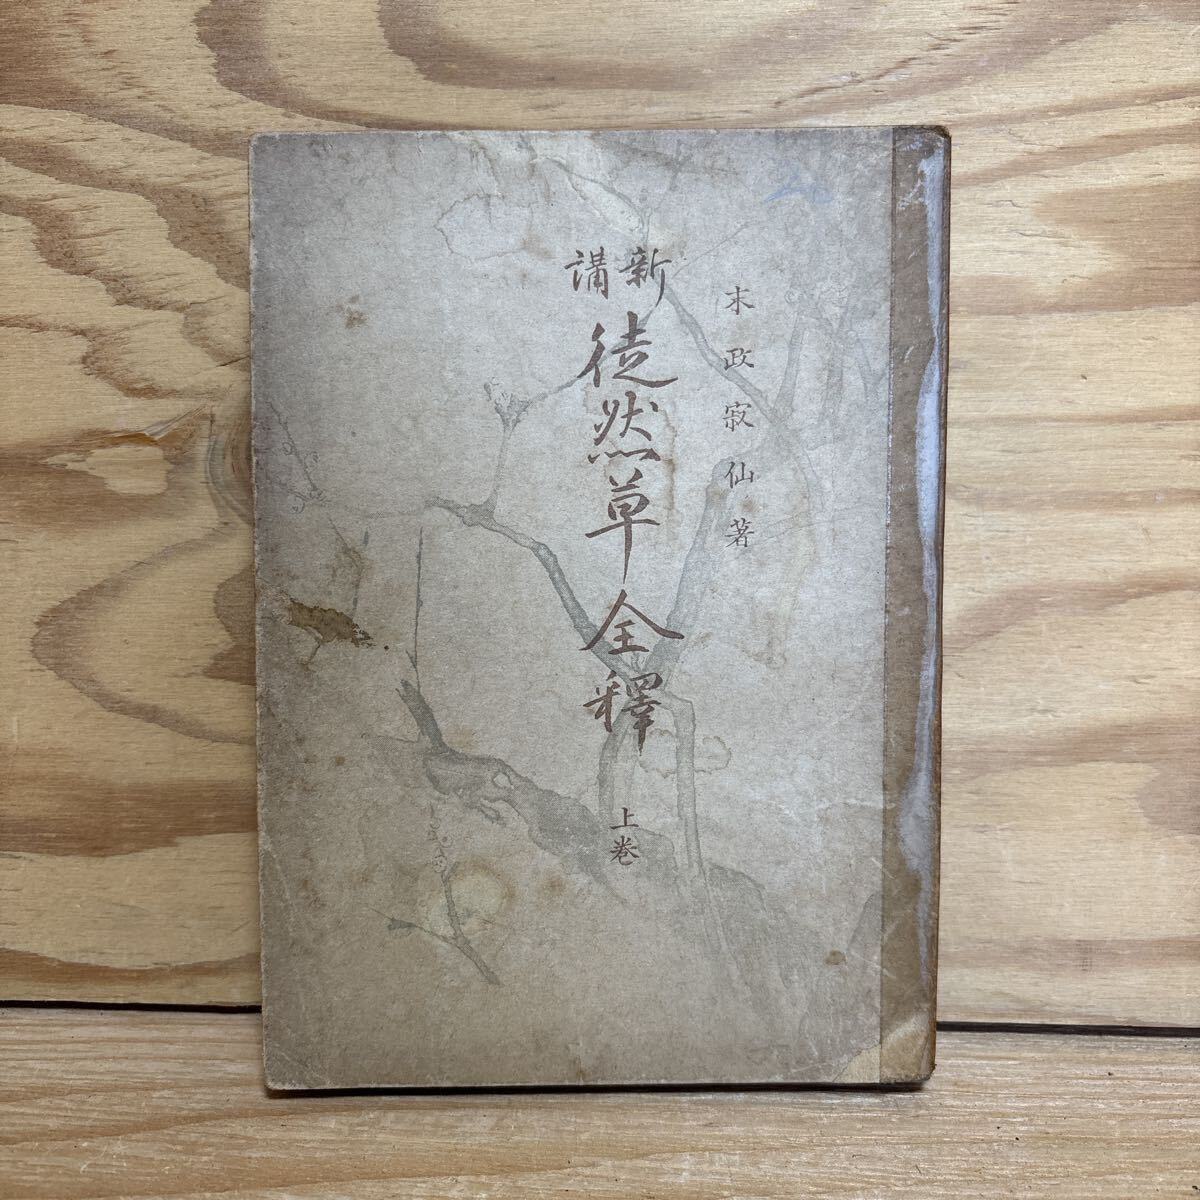 末政寂仙著
新講
徒然草全釋
上巻